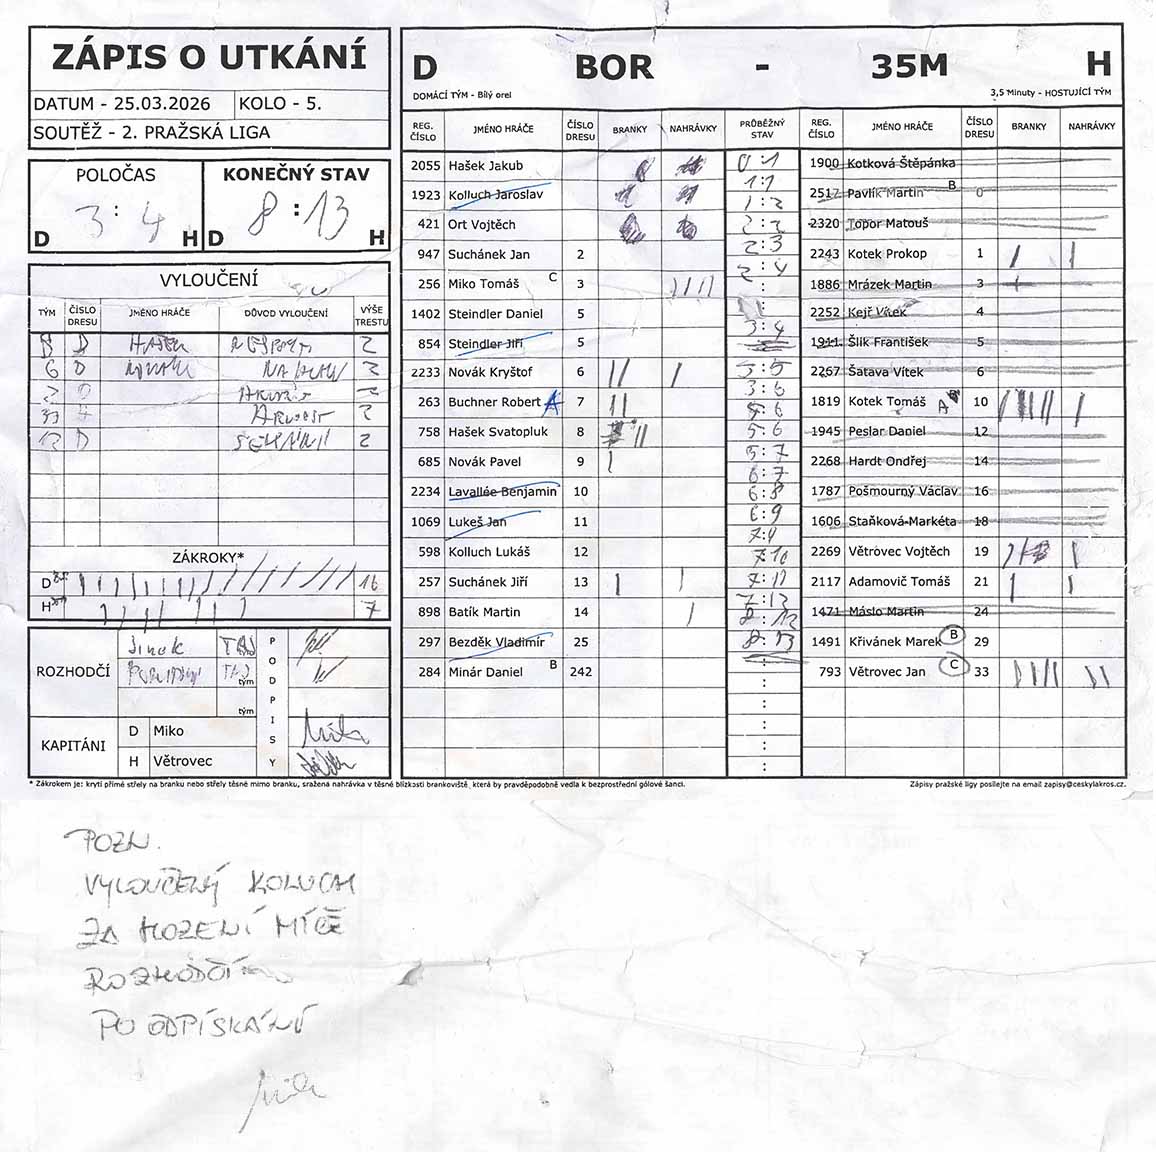 ZÁPIS O UTKÁNÍ
DATUM - 25.03.2026 KOLO - 5.
SOUTĚŽ - 2. PRAŽSKÁ LIGA
POLOČAS
3 : 4
D H
KONEČNÝ STAV
8 : 13
D H
VYLOUČENÍ
TÝM ČÍSLO DRESU JMÉNO HRÁČE DŮVOD VYLOUČENÍ VÝŠE TRESTU
HAŠEK 2
2
2
2
ZÁKROKY*
D 16
H 7
ROZHODČÍ
tým
tým
KAPITÁNI
D Miko
H Větrovec
PODPISY
D BOR - 35M H
DOMÁCÍ TÝM - Bílý orel 3,5 Minuty - HOSTUJÍCÍ TÝM
REG. ČÍSLO JMÉNO HRÁČE ČÍSLO DRESU BRANKY NAHRÁVKY
2055 Hašek Jakub
1923 Kolluch Jaroslav
421 Ort Vojtěch
947 Suchánek Jan 2
256 Miko Tomáš C 3
1402 Steindler Daniel 5
854 Steindler Jiří 5
2233 Novák Kryštof 6
263 Buchner Robert A 7
758 Hašek Svatopluk 8
685 Novák Pavel 9
2234 Lavallée Benjamin 10
1069 Lukeš Jan 11
598 Kolluch Lukáš 12
257 Suchánek Jiří 13
898 Batík Martin 14
297 Bezděk Vladimír 25
284 Minár Daniel B 242
PRŮBĚŽNÝ STAV
0:1
1:1
1:2
2:2
2:3
2:4
:
3:4
5:5
3:6
5:6
5:7
6:7
6:8
6:9
7:9
7:10
7:11
7:12
8:12
8:13
:
:
:
:
:
:
REG. ČÍSLO JMÉNO HRÁČE ČÍSLO DRESU BRANKY NAHRÁVKY
1900 Kotková Štěpánka
2517 Pavlík Martin B 0
2320 Topor Matouš
2243 Kotek Prokop 1
1886 Mrázek Martin 3
2252 Kejř Vítek 4
1911 Šlik František 5
2267 Šatava Vítek 6
1819 Kotek Tomáš A 10
1945 Peslar Daniel 12
2268 Hardt Ondřej 14
1787 Pošmourný Václav 16
1606 Staňková Markéta 18
2269 Větrovec Vojtěch 19
2117 Adamovič Tomáš 21
1471 Máslo Martin 24
1491 Křivánek Marek B 29
793 Větrovec Jan C 33
* Zákrokem je: krytí přímé střely na branku nebo střely těsně mimo branku, sražená nahrávka v těsné blízkosti brankoviště, která by pravděpodobně vedla k bezprostřední gólové šanci.
Zápisy pražské ligy posílejte na email zapisy@ceskylakros.cz.
POZN.
VYLOUČENÝ KOLUCH
ZA HOZENÍ MÍČE
ROZHODČÍ
PO ODPÍSKÁNÍ